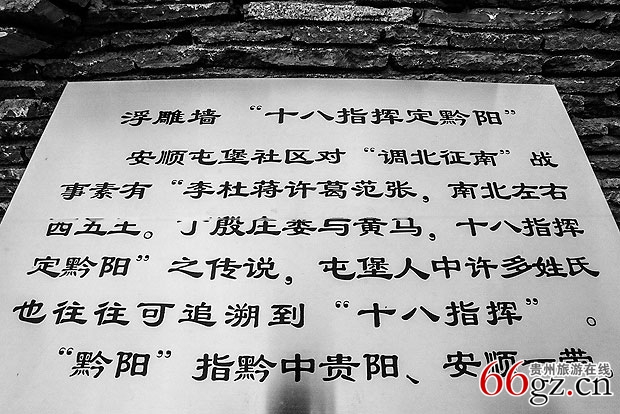 浮雕墙 “十八指挥定黔阳”
安顺屯堡社区对“调北征南”战
事素有“李杜蒋许葛范张，南北左右
西五土。丁殷庄娄与黄马，十八指挥
定黔阳”之传说，屯堡人中许多姓氏
也往往可追溯到“十八指挥”。
“黔阳”指黔中贵阳、安顺一带
贵州旅游在线
66gz.cn